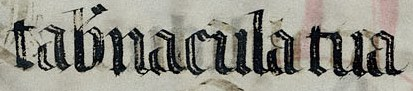 tab̄nacula tua